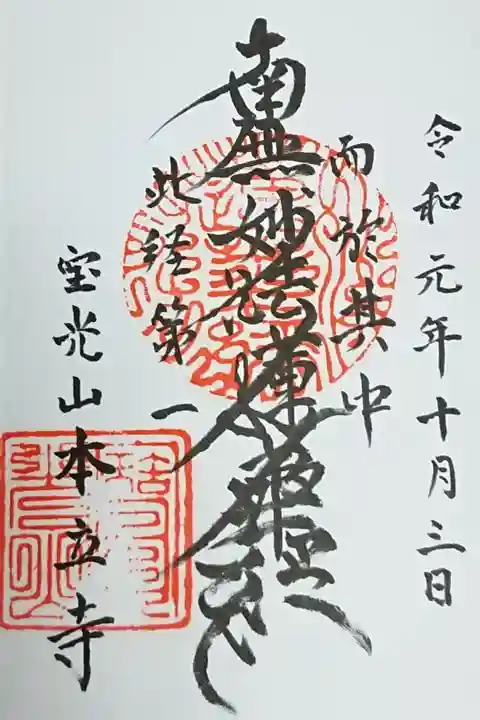 令和元年十月三日
而於其中
南無妙法蓮華経
此経第一
宝光山本立寺